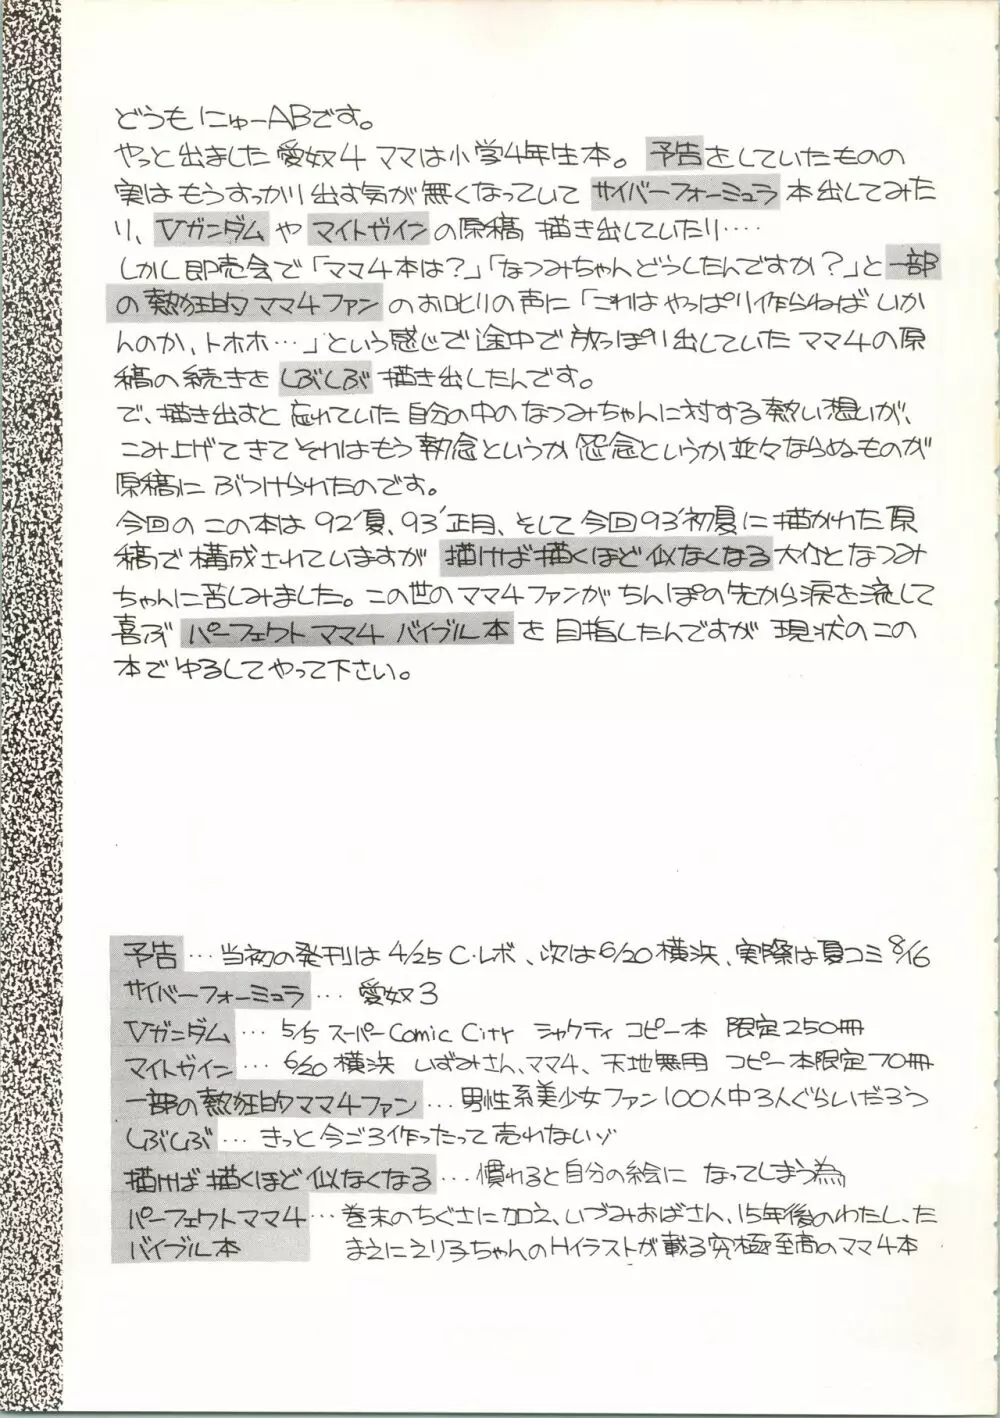 どうもにゅーABです。
やっと出ました愛奴4 ママは小学4年生本。予告をしていたものの
実はもうすっかり出す気が無くなっていて サイバーフォーミュラ 本出してみた
り、Vガンダム や マイトガイン の原稿 描き出していたり‥‥
しかし即売会で「ママ4本は?」「なつみちゃんどうしたんですか?」と一部
の熱狂的ママ4ファン のお叱りの声に「これはやっぱり作らねば いか
んのか、トホホ…」という感じで途中で放っぽり出していたママ4の原
稿の続きを しぶしぶ 描き出したんです。
で、描き出すと忘れていた自分の中のなつみちゃんに対する熱い想いが、
こみ上げてきてそれはもう執念というか怨念というか並々ならぬものが
原稿に ぶつけられたのです。
今回の この本は 92'夏、93'正月、そして今回93'初夏に描かれた原
稿で構成されていますが 描けば描くほど似なくなる 大介となつみ
ちゃんに苦しみました。この世のママ4ファンがちんぽの先から涙を流して
喜ぶ パーフェクトママ4 バイブル本 を 目指したんですが 現状のこの
本でゆるしてやって下さい。
予告 … 当初の発刊は4/25 C・レボ、次は6/20横浜、実際は夏コミ8/16
サイバーフォーミュラ … 愛奴3
Vガンダム … 5/5 スーパーComic City シャクティ コピー本 限定250冊
マイトガイン … 6/20横浜 いずみさん、ママ4、天地無用 コピー本限定70冊
一部の熱狂的ママ4ファン … 男性系美少女ファン100人中3人ぐらいだろう
しぶしぶ … きっと今ごろ作ったって売れないゾ
描けば描くほど似なくなる … 慣れると自分の絵に なってしまう為
パーフェクトママ4 … 巻末のちぐさに加え、いづみおばさん、15年後のわたし、た
バイブル本 まえにえり子ちゃんのHイラストが載る究極至高のママ4本